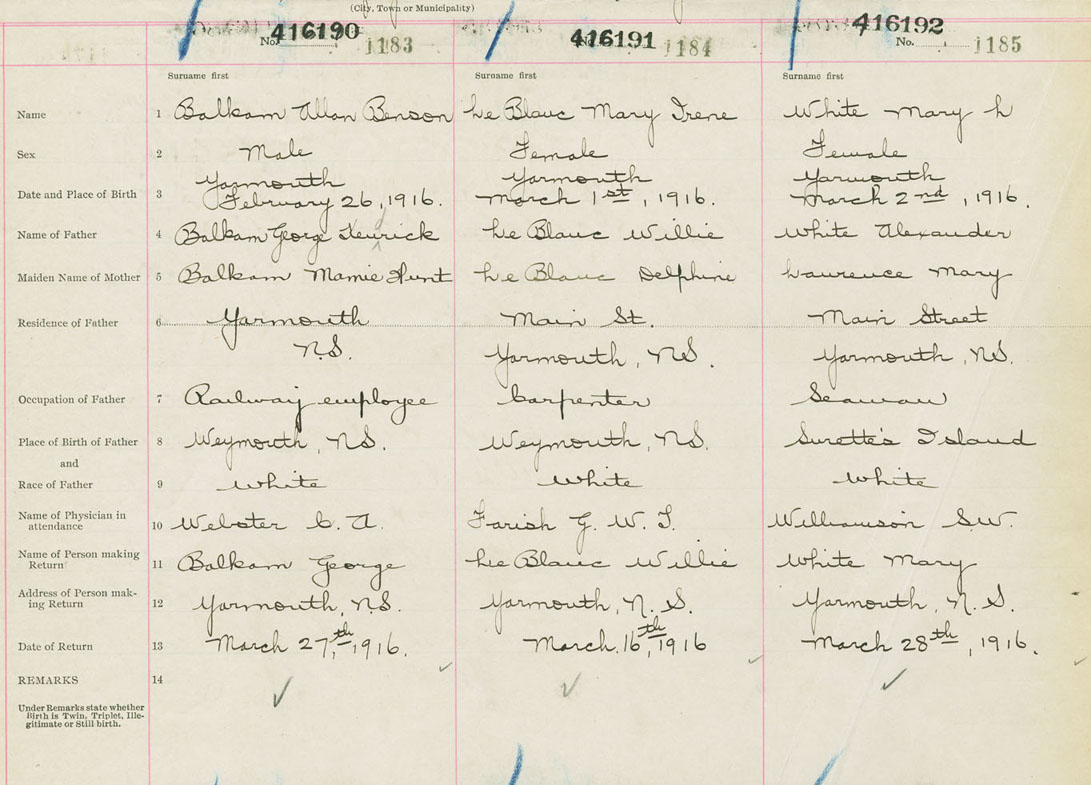 (City, Town or Municipality)
416190 416191 416192
No. 1183 1184 No. 1185
Surname first Surname first Surname first
Name 1 Balkam Allan Benson Le Blanc Mary Irene White Mary L
Sex 2 Male Female Female
Yarmouth Yarmouth Yarmouth
Date and Place of Birth 3 February 26, 1916. March 1st, 1916. March 2nd, 1916.
Name of Father 4 Balkam George Le Blanc Willie White Alexander
Maiden Name of Mother 5 Balkam Mamie Hunt Le Blanc Delphine Laurence Mary
Residence of Father 6 Yarmouth Main St. Main Street
N.S. Yarmouth, NS. Yarmouth, NS.
Occupation of Father 7 Railway employee Carpenter Seaman
Place of Birth of Father 8 Weymouth, NS. Weymouth, NS. Surette's Island
and
Race of Father 9 White White White
Name of Physician in
attendance 10 Webster C. A. Farish G. W. T. Williamson S.W.
Name of Person making
Return 11 Balkam George Le Blanc Willie White Mary
Address of Person mak-
ing Return 12 Yarmouth, N.S. Yarmouth, N. S. Yarmouth, N. S.
Date of Return 13 March 27,th 1916. March. 16th, 1916 March 28th, 1916.
REMARKS 14
Under Remarks state whether
Birth is Twin, Triplet, Ille-
gitimate or Still birth.